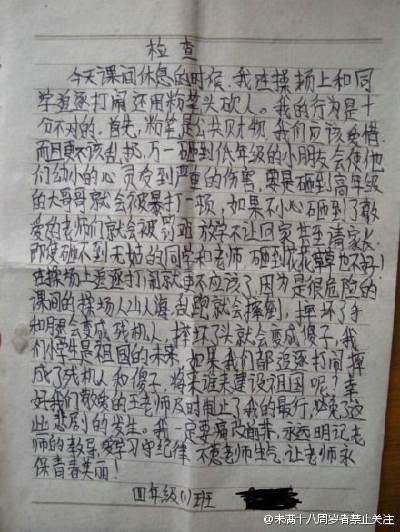 检查
今天课间休息的时候，我在操场上和同
学追逐打闹还用粉笔头砍人。我的行为是十
分不对的。首先，粉笔是公共财物，我们应该爱惜。
而且更不该乱扔，万一砸到低年级的小朋友会使他
们幼小的心灵受到严重的伤害，要是砸到高年级
的大哥哥就会被暴打一顿，如果不小心砸到了敬
爱的老师们就会被罚站 放学不让回家甚至请家长。
即使砸不到无辜的同学和老师 砸到花花草草也不好！
在操场上追逐打闹就更不应该了，因为是很危险的
课间的操场人山人海，乱跑就会摔到，摔坏了手
和腿会变成残疾人，摔坏了头就会变成傻子，我
们小学生是祖国的未来，如果我们都追逐打闹摔
成了残疾人和傻子，将来谁来建设祖国呢？幸
好我们敬爱的王老师及时制止了我的暴行，避免了这
些悲剧的发生。我一定要痛改前非，永远明记老
师的教导，爱学习守纪律，不惹老师生气，让老师永
保青春美丽！
四年级(1)班
@未满十八周岁者禁止关注